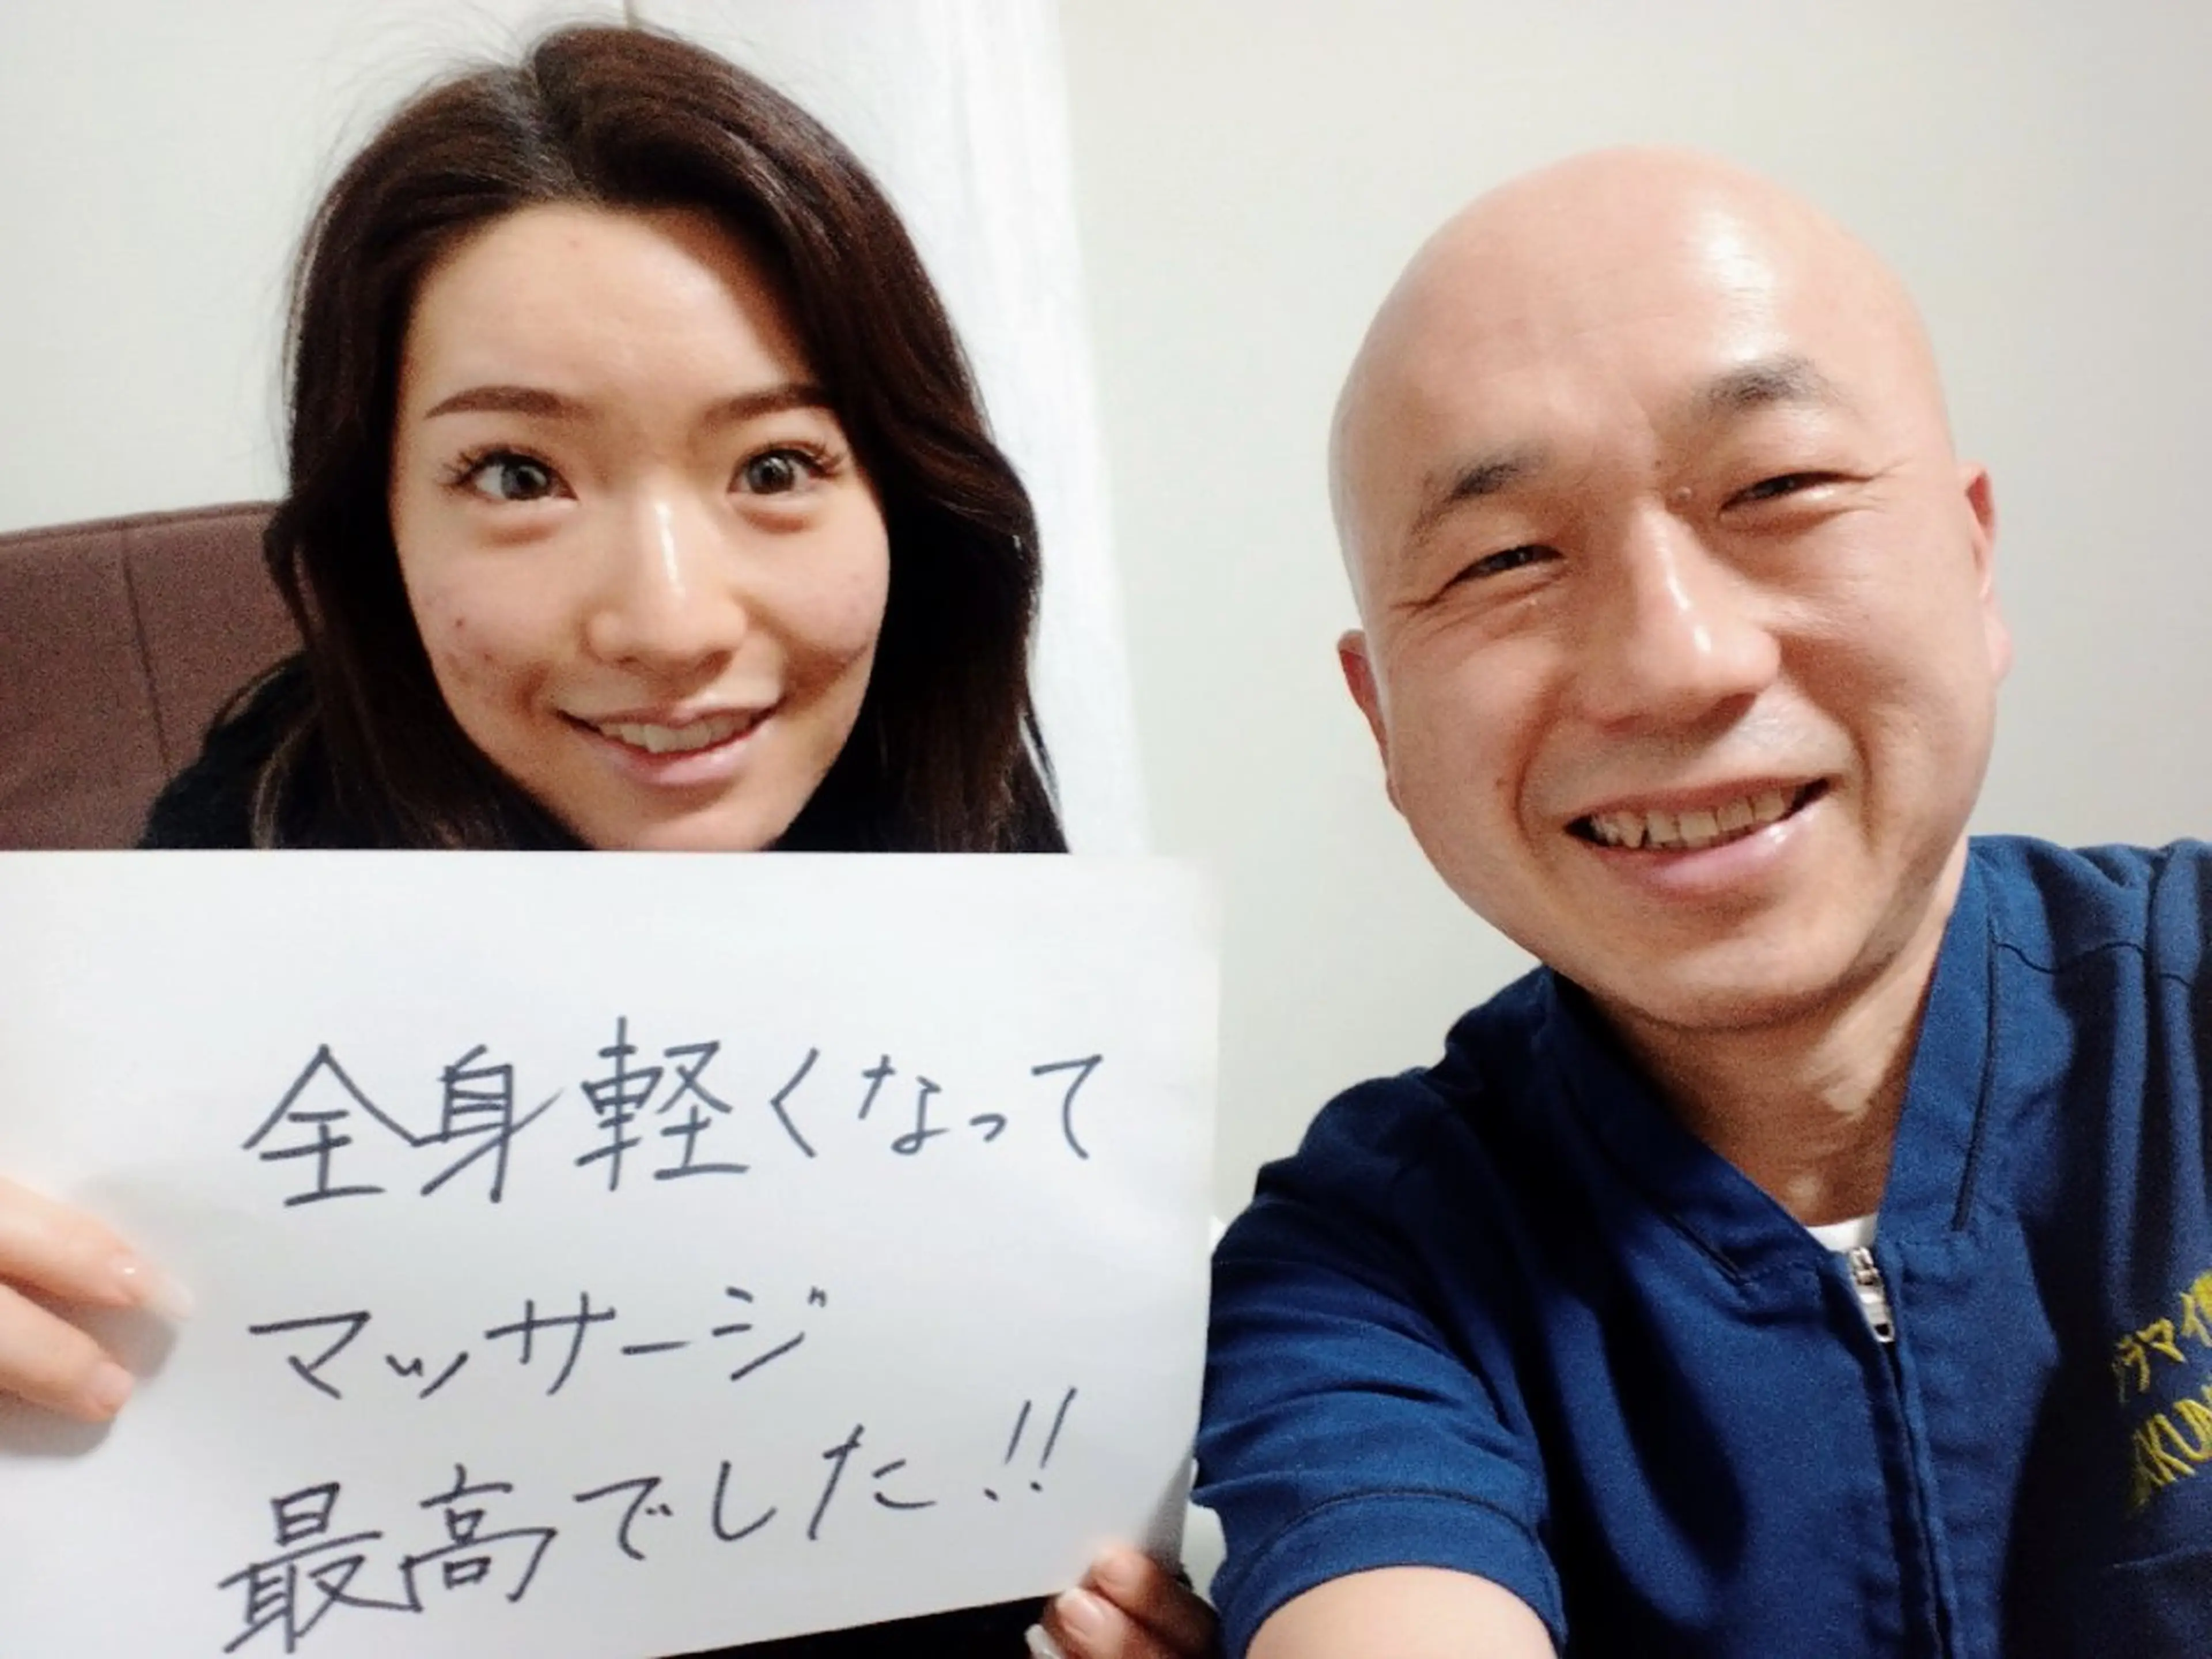 全身軽くなって
マッサージ
最高でした!!
ラマイ
KUN